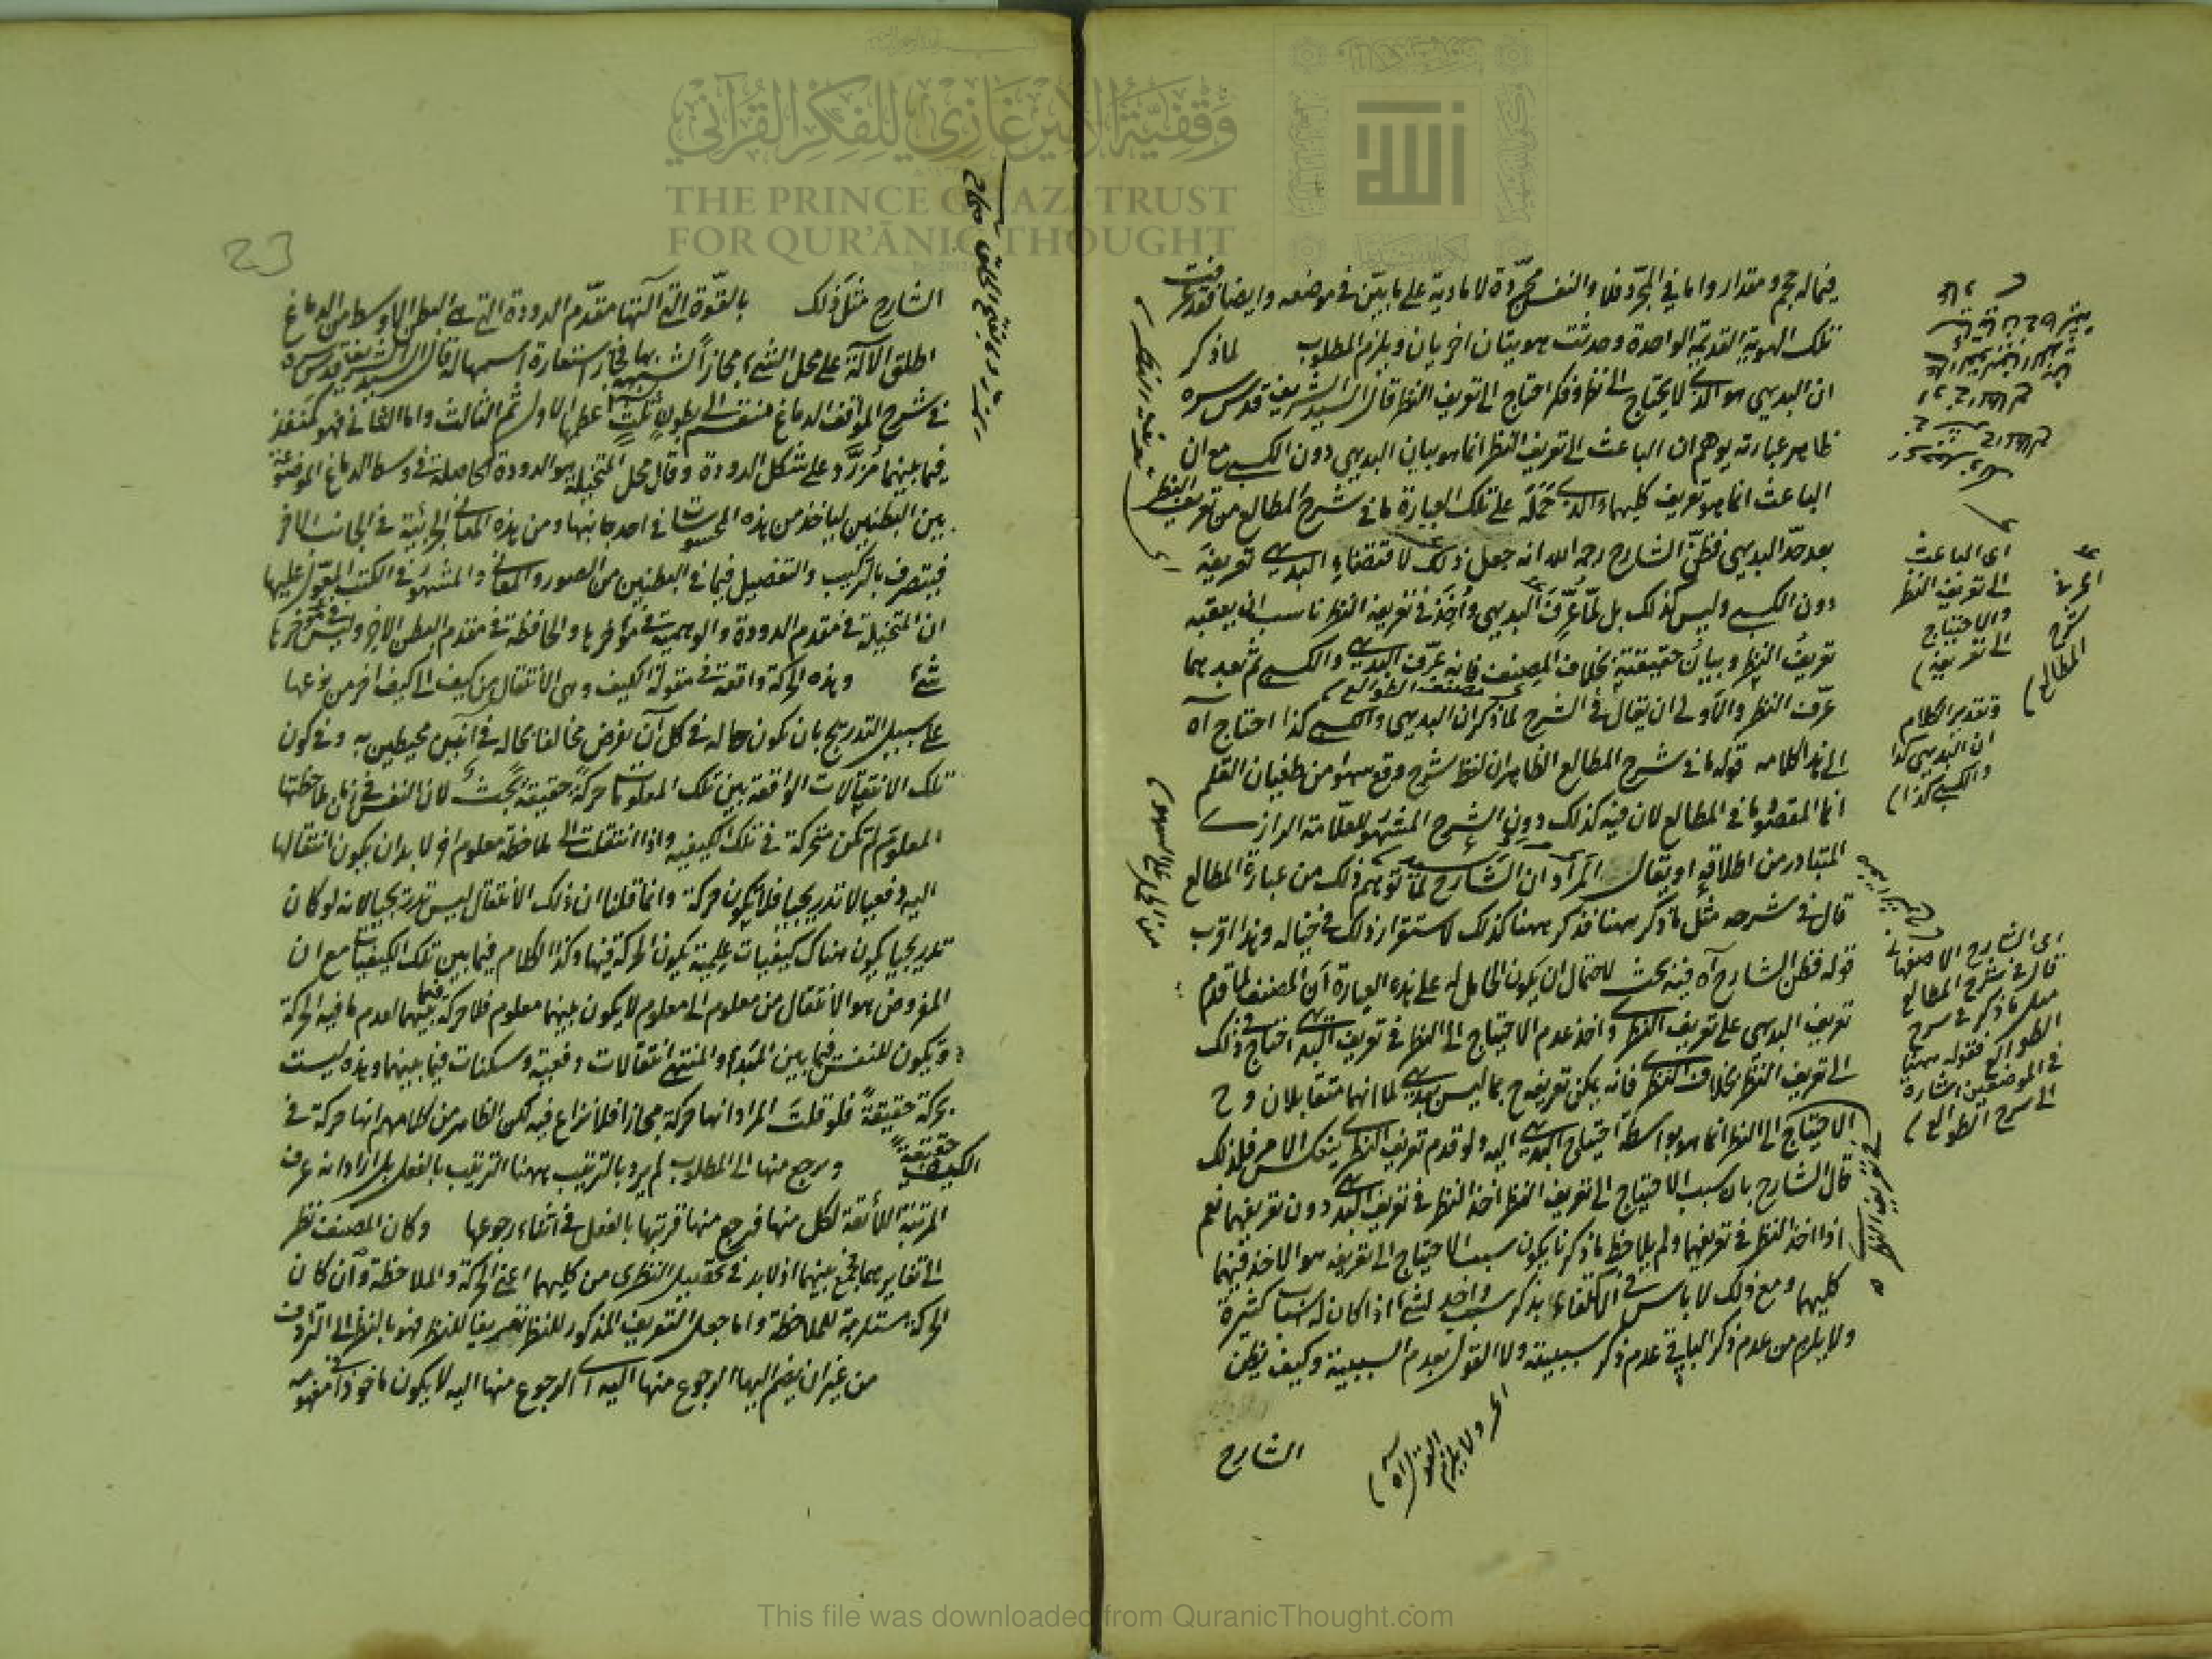 وقفية الأمير غازي للفكر القرآني
THE PRINCE GHAZI TRUST
FOR QUR'ĀNIC THOUGHT
فيما له حجم ومقدار واما في المجرد فلا والنفس مجردة لا مادية على ما بين في موضعه وايضا فقد
تلك الهوية القديمة الواحدة وحدثت هويتان اخريان ويلزم المطلوب لما ذكر
ان البديهي هو الذي لا يحتاج الى نظر وفكر احتاج الى تعريف النظر قال السيد الشريف قدس سره
ظاهر عبارته يوهم ان الباعث الى تعريف النظر انما هو بيان البديهي دون الكسبي مع ان
الباعث انما هو تعريف كليهما والذي حمله على تلك العبارة ما في شرح المطالع من تعريف النظر
بعد حد البديهي فظن الشارح رحمه الله انه جعل ذلك لاقتضاء البديهي تعريفه
دون الكسبي وليس كذلك بل لما عرف البديهي واخذ في تعريفه النظر ناسب ان يعقبه
تعريف النظر وبيان حقيقته بخلاف المصنف فانه عرف البديهي والكسبي ثم بعدهما
عرف النظر والاولى ان يقال في الشرح لما ذكر ان البديهي والكسبي كذا احتاج آه
الى هذا كلامه قوله ما في شرح المطالع الظاهر ان لفظ شرح وقع سهوا من طغيان القلم
انما المقصود ما في المطالع لان فيه كذلك دون الشرح المشهور للعلامة الرازي
المتبادر من اطلاقه او يقال المراد ان الشارح لما توهم ذلك من عبارة المطالع
قال في شرحه مثل ما ذكر هنا فذكر ههنا كذلك لاستقرار ذلك في خياله وهذا اقرب
قوله فظن الشارح آه فيه بحث لاحتمال ان يكون الحامل له على هذه العبارة ان المصنف لما قدم
تعريف البديهي على تعريف النظري واخذ عدم الاحتياج الى النظر في تعريف البديهي احتاج في ذلك
الى تعريف النظر بخلاف النظري فانه يمكن تعريفه ح بما ليس ببديهي لما انهما متقابلان و ح
الاحتياج الى النظر انما هو بواسطة احتياج البديهي اليه ولو قدم تعريف النظري ينعكس الامر فلذلك
قال الشارح بان سبب الاحتياج الى تعريف النظر اخذ النظر في تعريف البديهي دون تعريفهما نعم
اذا اخذ النظر في تعريفهما ولم يلاحظ ما ذكرنا يكون سبب الاحتياج الى تعريفه هو الاخذ فيهما
كليهما ومع ذلك لا باس في الاكتفاء بذكر سبب واحد لشيء اذا كان له اسباب كثيرة
ولا يلزم من عدم ذكر الباقي عدم ذكر سببيته ولا القول بعدم السببية وكيف يظن
الشارح
اى الباعث
الى تعريف النظر
والاحتياج
الى تعريفه
وتقدير الكلام
ان البديهي كذا
والكسبي كذا
شرح
المطالع
اى الشارح الاصفهاني
قال في شرح المطالع
مثل ما ذكر في شرح
الطوالع فقوله ههنا
في الموضعين اشارة
الى شرح الطوالع
23
الشارح مثل ذلك بالقوة التي آلتها مقدم الدودة التي هي البطن الاوسط من الدماغ
اطلق الآلة على محل الشيء مجازا
في شرح المواقف الدماغ منقسم الى بطون ثلث اعظمها الاول ثم الثالث واما الثاني فهو كمنفذ
فيما بينهما مزرد على شكل الدودة وقال محل المتخيلة هو الدودة الحاصلة في وسط الدماغ الموضوعة
بين البطنين لياخذ من هذه المحسوسات في احد جانبيها ومن هذه المعاني الجزئية في الجانب الآخر
فيتصرف بالتركيب والتفصيل فيما في البطنين من الصور والمعاني والمشهور في الكتب المعول عليها
ان المتخيلة في مقدم الدودة والوهمية في مؤخرها والحافظة في مقدم البطن الاخير وليس في مؤخرها
شئ وهذه الحركة واقعة في مقولة الكيف وهي الانتقال من كيف الى كيف آخر من نوعها
على سبيل التدريج بان تكون حاله في كل آن يفرض مخالفا لحاله في آنين محيطين به وفي كون
تلك الانتقالات الواقعة بين تلك المعلومات حركة حقيقة بحث لان النفس في زمان ملاحظتها
المعلوم لم تكن متحركة في تلك الكيفية واذا انتقلت الى ملاحظة معلوم آخر لا بد ان يكون انتقالها
اليه دفعيا لا تدريجيا فلا يكون حركة وانما قلنا ان ذلك الانتقال ليس تدريجيا لانه لو كان
تدريجيا يكون هناك كيفيات علمية يكون الحركة فيها وكذا الكلام فيما بين تلك الكيفيات مع ان
المفروض هو الانتقال من معلوم الى معلوم لا يكون بينهما معلوم فلا حركة فيما بينهما لعدم ما فيه الحركة
ويكون للنفس فيما بين المبدأ والمنتهى انتقالات دفعية وسكنات فيما بينهما وهذه ليست
بحركة حقيقة فلو قلت المراد انها حركة مجازا فلا نزاع فيه لكن الظاهر من كلامهم انها حركة في
الكيف حقيقة ويرجع منها الى المطلوب لم يرد بالترتيب ههنا الترتيب بالفعل بل اراد انه عرف
المرتبة اللائقة لكل منها فيرجع منها فرتبها بالفعل في اثناء رجوعها وكان المصنف نظر
الى تغايرهما فجمع بينهما اذ لا بد في تحصيل النظري من كليهما اعني الحركة والملاحظة وان كان
الحركة مستلزمة للملاحظة واما جعل التعريف المذكور للنظر تعريفا للنظر فهو بالنظر الى الترادف
من غير ان يضم اليها الرجوع منها اليه اى الرجوع منها اليه لا يكون ماخوذا في مفهومه
This file was downloaded from QuranicThought.com